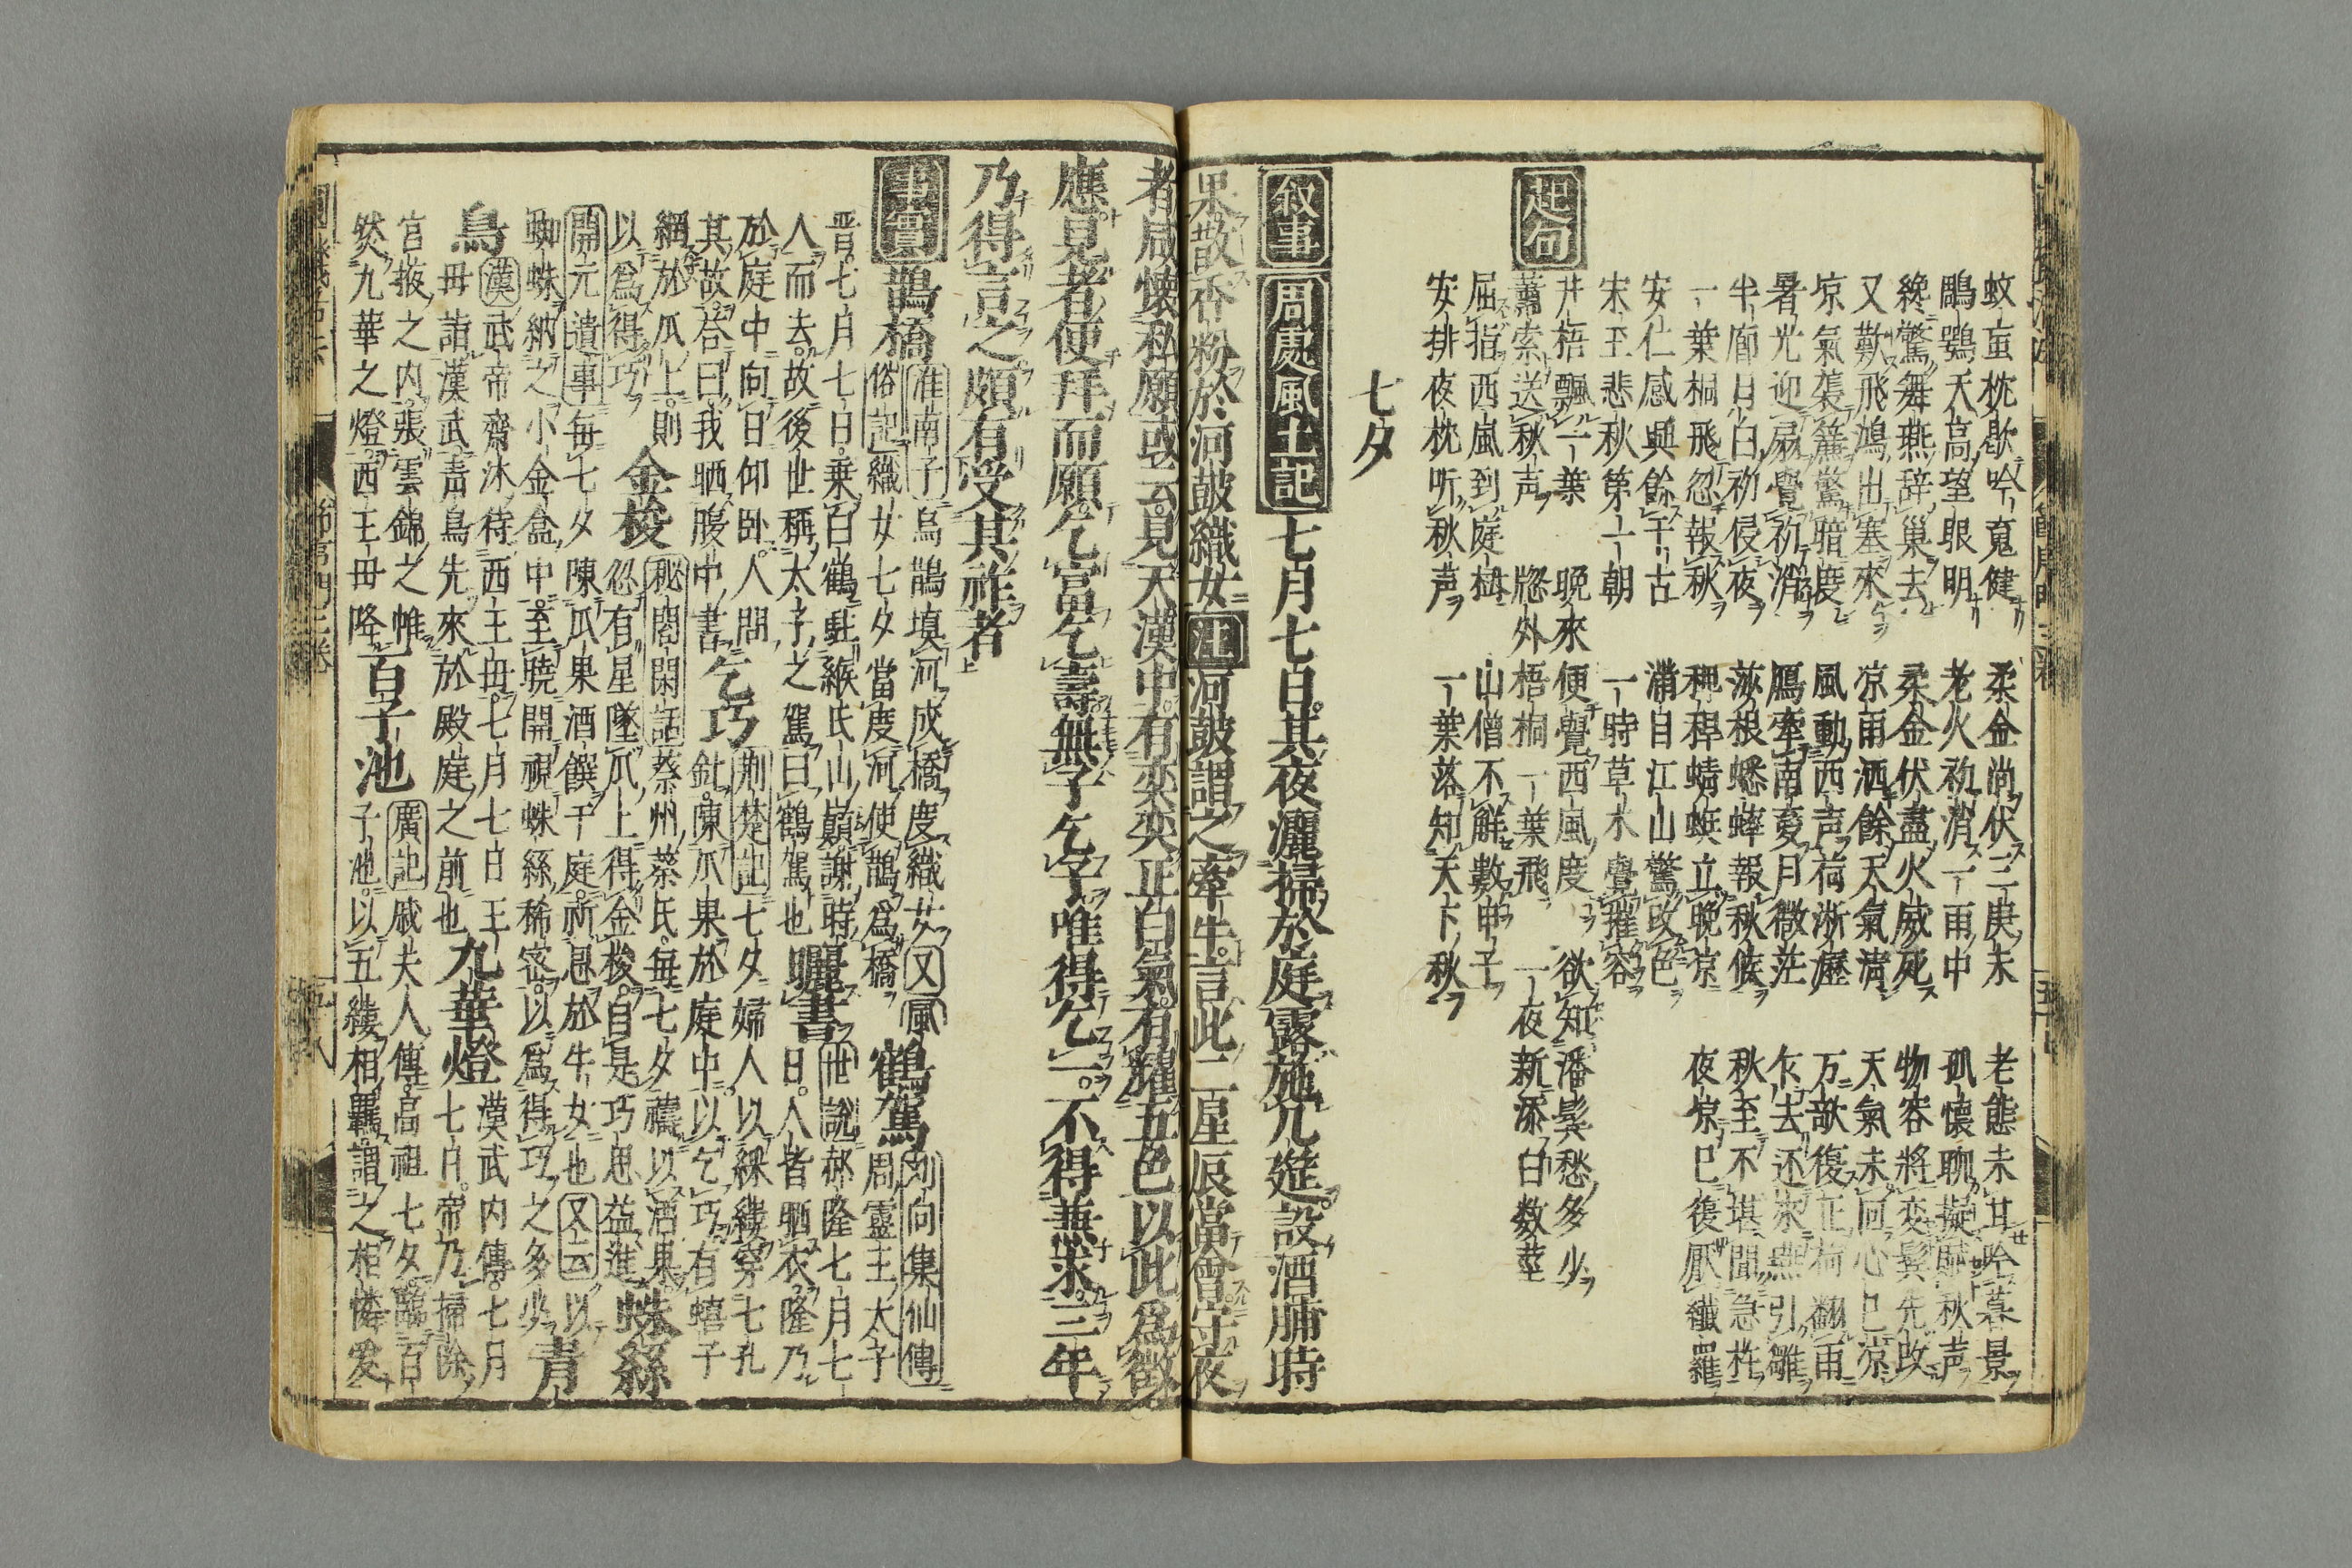 蚊䖟枕歇吟䰟健　柔金尚伏三庚末　老態未甘吟暮景
鵰鶚天高望眼明　老火初消一雨中　孤懐聊擬賦秋声
纔驚舞燕辞巢去　柔金伏盡火威死　物容將変鬂先改
又歎飛鴻出塞來　凉雨洒餘天氣清　天氣未回心已凉
凉氣襲簾驚暗度　風動西声荷淅瀝　万欹復正荷翻雨
暑光迎扇覺初消　鴈牽南夏月微茫　乍去还來燕引雛
半廊月白初侵夜　莎根蟋蟀報秋候　秋至不堪聞急杵
一葉桐飛忽報秋　䆉稏蜻蜓立晚凉　夜凉已復厭纖羅
安仁感興餘千古　滿目江山驚改色
宋玉悲秋第一朝　一時草木覺摧容
起句　井梧飄一葉　晚來便覺西風度　欲知潘鬂愁多少
蕭索送秋声　窓外梧桐一葉飛　一夜新添白数莖
屈指西風到庭梧　山僧不解數甲子
安排夜枕听秋声　一葉落知天下秋
七夕
叙事　周處風土記　七月七日其夜灑掃於庭露施几筵設酒脯時
果散香粉於河鼓織女　注　河鼓謂之牽牛言此二星辰當會守夜
者咸懐私願或云見天漢中有奕奕正白氣有耀五色以此爲徵
應見者便拜而願乞富乞壽無子乞子唯得乞一不得兼求三年
乃得言之頗有受其祚者
事實　鵲橋　淮南子　烏鵲塡河成橋度織女　又風
俗記　織女七夕當度河使鵲爲橋　鶴駕　刘向集仙傳　周靈王太子
晋七月七日乗白鶴駐緱氏山巓謝時
人而去故後世稱太子之駕曰鶴駕也　曬書　世說　郝隆七月七
日人皆晒衣隆乃
於庭中向日仰卧人問
其故答曰我晒腹中書　乞巧　荆楚記　七夕婦人以綵縷穿七孔
針陳爪果於庭中以乞巧有蟢子
網於爪上則
以爲得巧　金梭　秘閣閑話　蔡州蔡氏每七夕禱以酒果
忽有星墜爪上得金梭自是巧思益進　蛛絲
開元遺事　每七夕陳瓜果酒饌于庭祈恩於牛女也　又云　以
蜘蛛納之小金盒中至曉開視蛛絲稀密以爲得巧之多少　青
鳥　漢武帝齋沐待西王母七月七日王
母詣漢武青鳥先來於殿庭之前也　九華燈　漢武内傳七月
七日帝乃掃除
宫掖之内張雲錦之帷
然九華之燈西王母降　百子池　廣記　戚夫人傳高祖七夕臨百
子池以五縷相羈謂之相憐愛